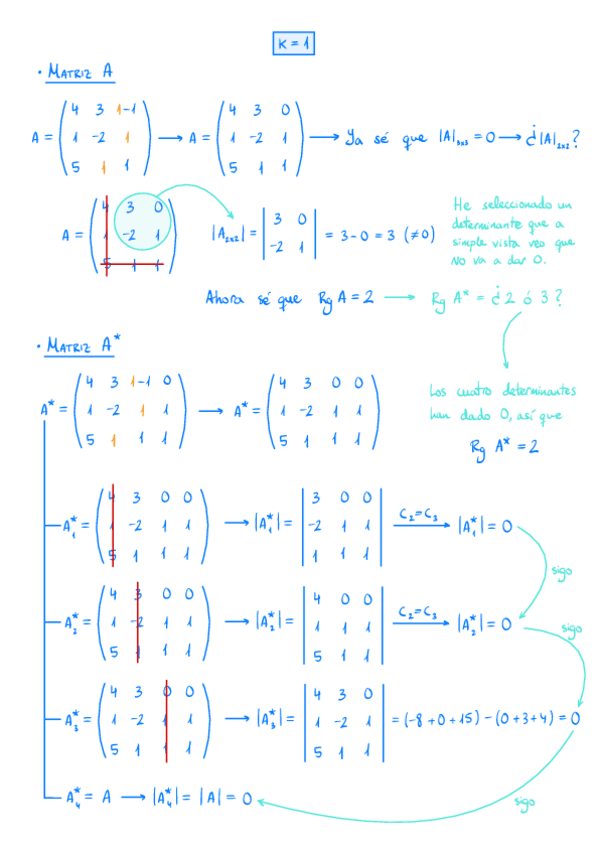 K = 1
· MATRIZ A
A = ( 4 3 1-1 ; 1 -2 1 ; 5 1 1 ) → A = ( 4 3 0 ; 1 -2 1 ; 5 1 1 ) → Ya sé que |A|₃ₓ₃ = 0 → ¿|A|₂ₓ₂?
A = ( 4 3 0 ; 1 -2 1 ; 5 1 1 ) |A₂ₓ₂| = | 3 0 ; -2 1 | = 3-0 = 3 (≠0)
He seleccionado un
determinante que a
simple vista veo que
NO va a dar 0.
Ahora sé que Rg A = 2 → Rg A* = ¿2 ó 3?
· MATRIZ A*
A* = ( 4 3 1-1 0 ; 1 -2 1 1 ; 5 1 1 1 ) → A* = ( 4 3 0 0 ; 1 -2 1 1 ; 5 1 1 1 )
Los cuatro determinantes
han dado 0, así que
Rg A* = 2
A*₁ = ( 4 3 0 0 ; 1 -2 1 1 ; 5 1 1 1 ) → |A*₁| = | 3 0 0 ; -2 1 1 ; 1 1 1 | C₂=C₃ → |A*₁| = 0
sigo
A*₂ = ( 4 3 0 0 ; 1 -2 1 1 ; 5 1 1 1 ) → |A*₂| = | 4 0 0 ; 1 1 1 ; 5 1 1 | C₂=C₃ → |A*₂| = 0
sigo
A*₃ = ( 4 3 0 0 ; 1 -2 1 1 ; 5 1 1 1 ) → |A*₃| = | 4 3 0 ; 1 -2 1 ; 5 1 1 | = (-8+0+15)-(0+3+4) = 0
A*₄ = A → |A*₄| = |A| = 0
sigo